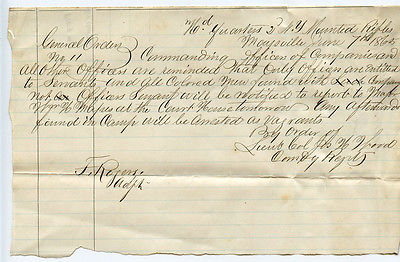 Hd Quarters 2 N Y Mounted Rifles
Maysville June 7th 1865
General Orders
No 11 Commanding Officers of Companies and
all other Officers are reminded that Only Officers are entitled
to Servants and all Colored Men found with
not Officers Servants will be required to report to
at the Court House tomorrow Any afterwards
found in Camp will be arrested as vagrants
By Order of
Lieut Col Jas H Wood
Comdg Regt
F. Rogers
Adjt